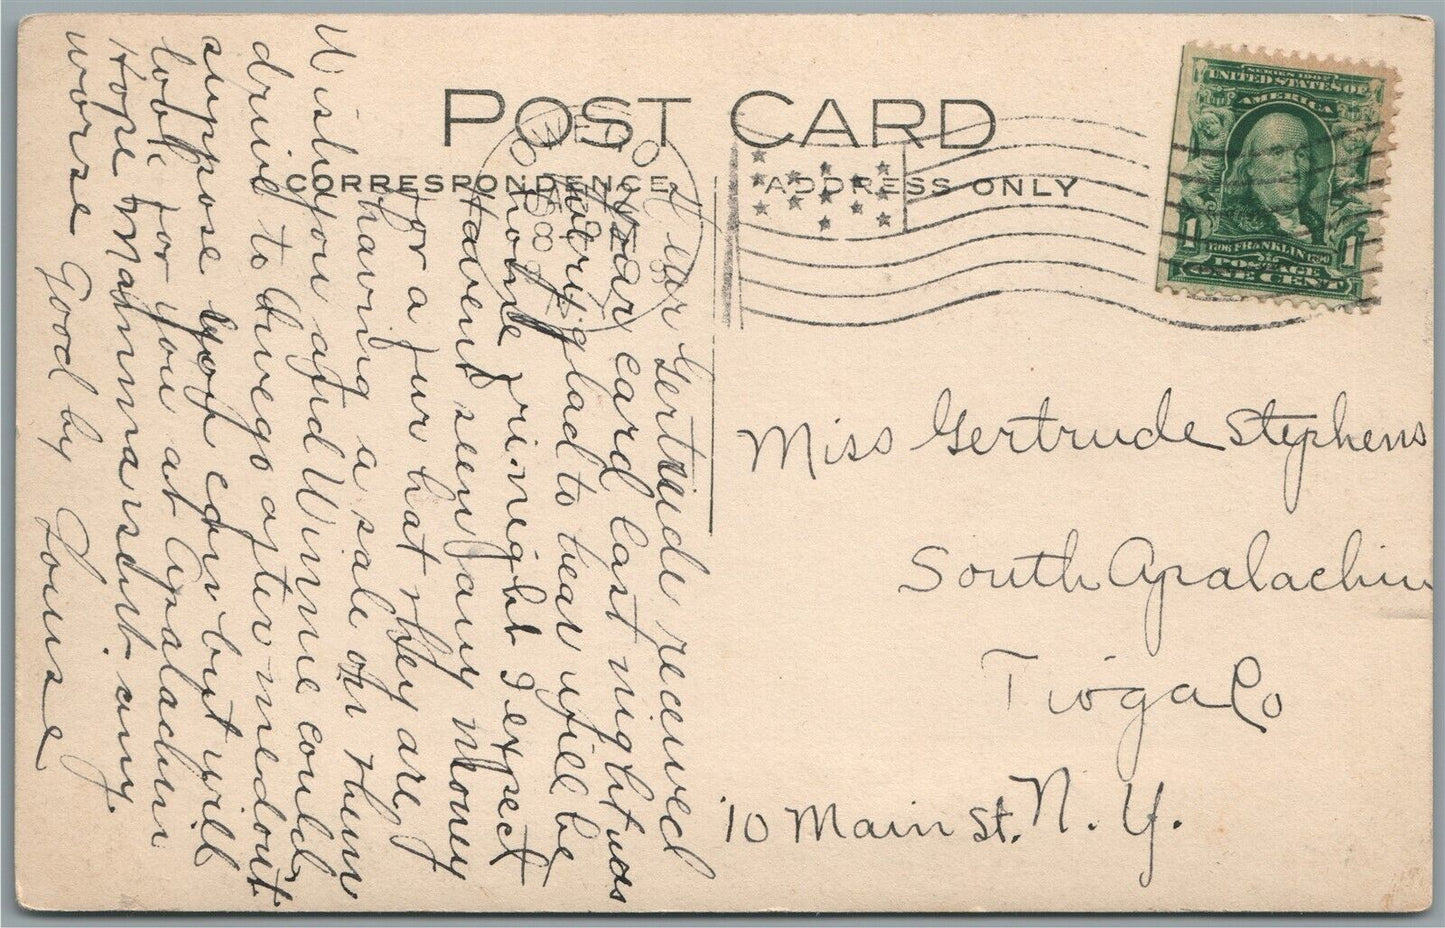 POST CARD
CORRESPONDENCE
ADDRESS ONLY
OWEGO
SERIES 1902
UNITED STATES OF
AMERICA
1 1706 FRANKLIN 1790 1
POSTAGE
ONE CENT
Miss Gertrude Stephens
South Apalachin
Tioga Co
N. Y.
10 Main St.
Dear Gertrude received
your card last night was
very glad to hear will be
home I expect
Havent seen any money
for a fur hat they are
having a sale on them
Wish you and Winnie could
drive to Owego after me dont
suppose you can but will
look for you at Apalachin
Hope Mamma isent any
worse Good by Louise